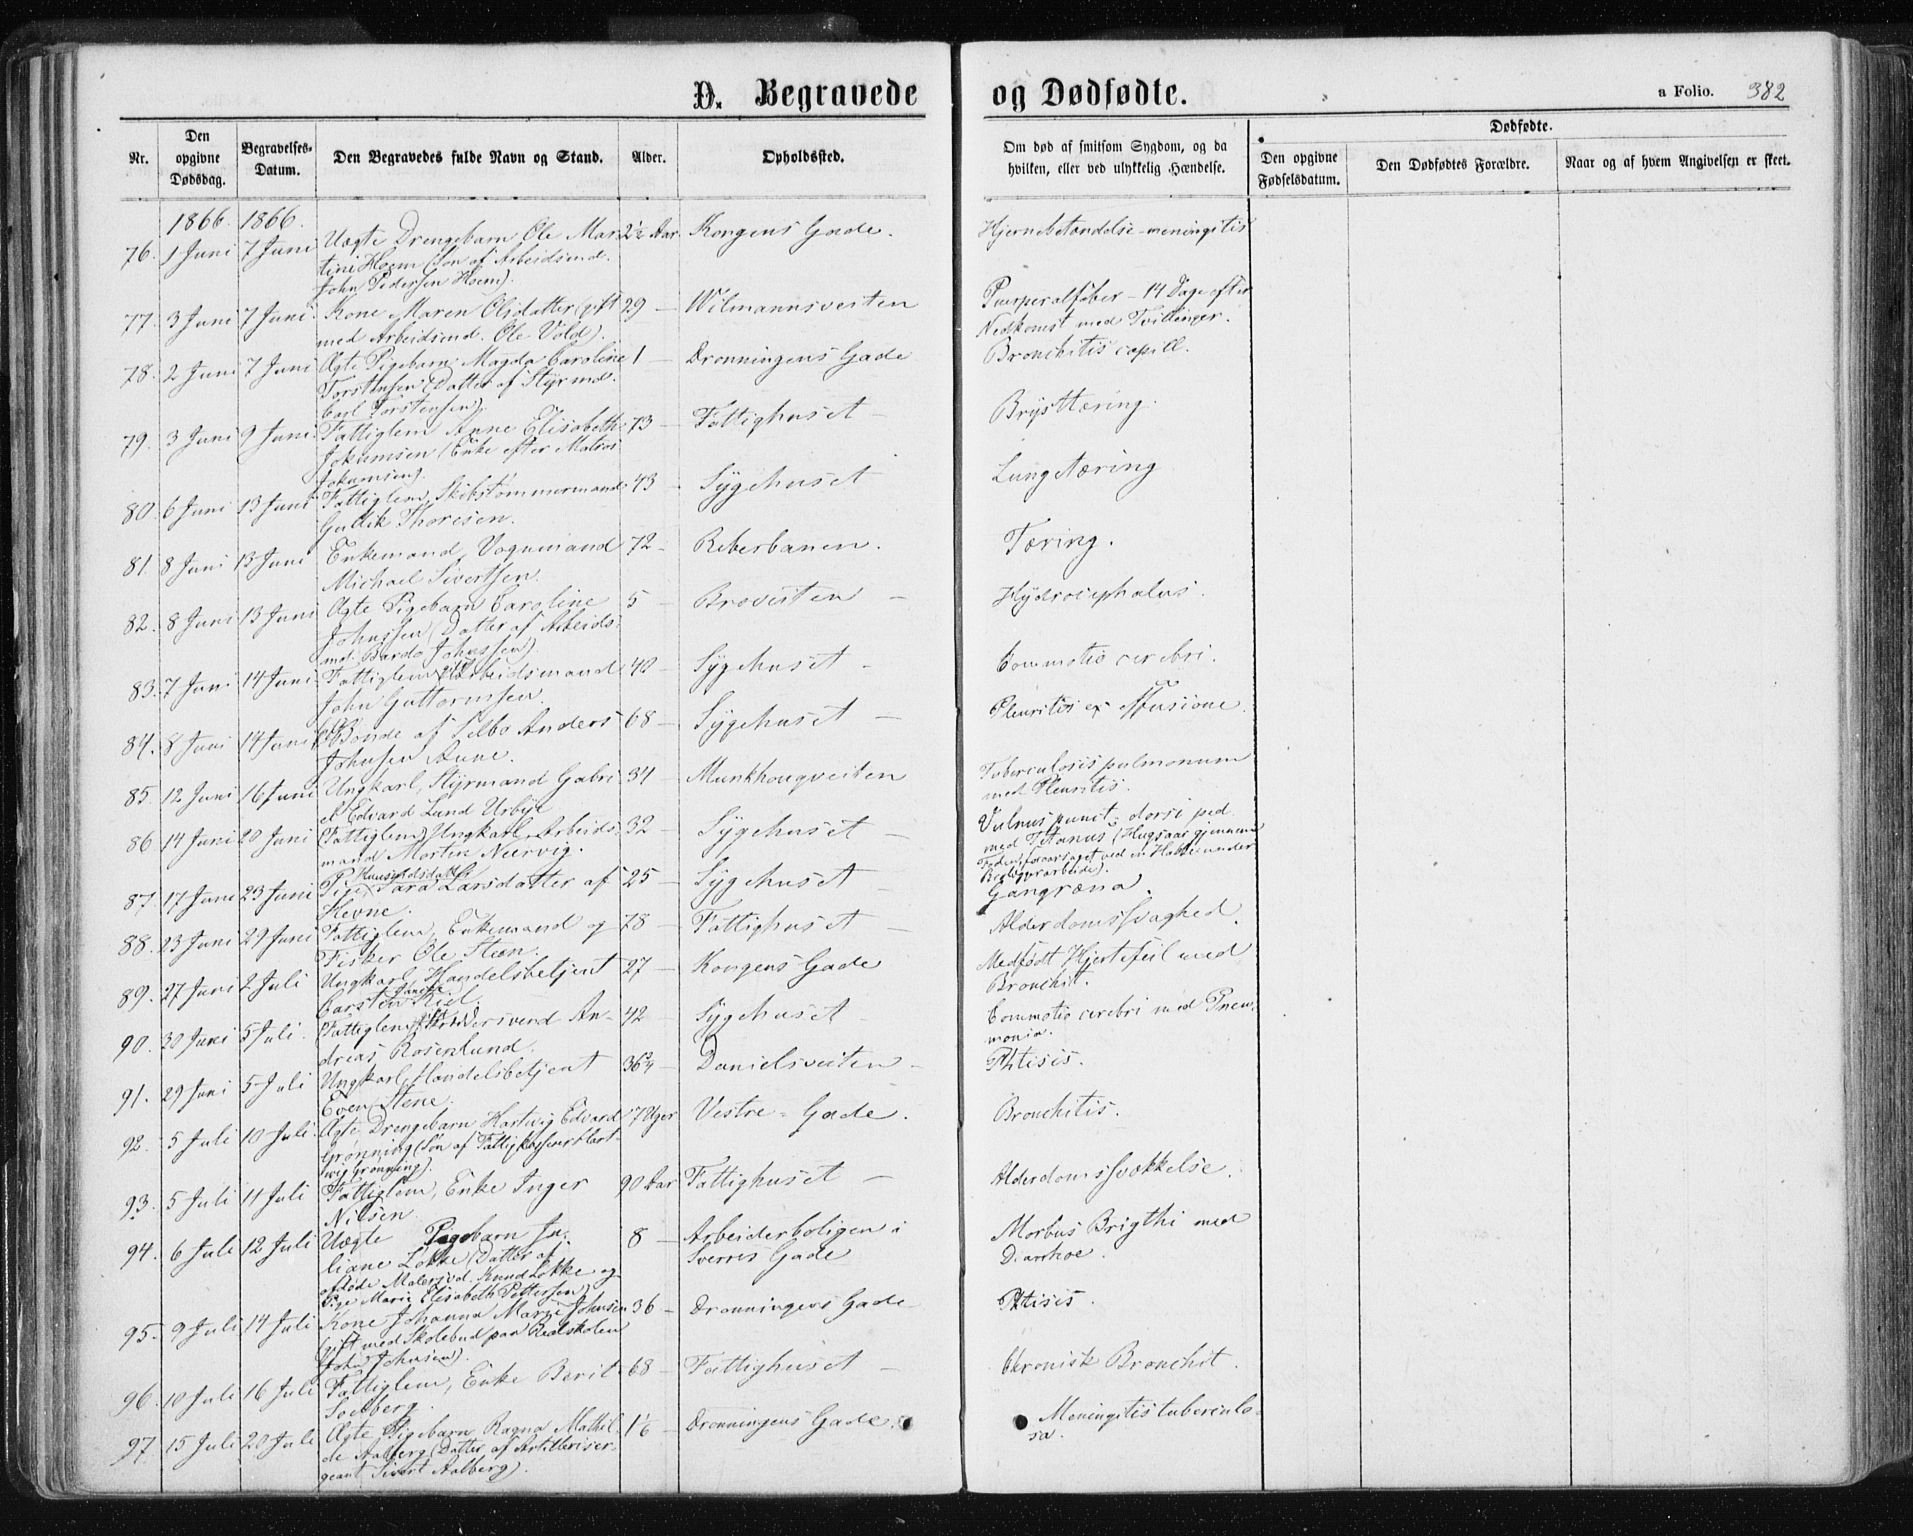 D. Begravede og Dødfødte. a Folio. 382
Nr. Den opgivne Dødsdag. Begravelses-Datum. Den Begravedes fulde Navn og Stand. Alder. Opholdssted. Om død af smitsom Sygdom, og da hvilken, eller ved ulykkelig Hændelse. Dødfødte. Den opgivne Fødselsdatum. Den Dødfødtes Forældre. Naar og af hvem Angivelsen er skeet.
1866. 1866.
76. 1 Juni 7 Juni Uægte Drengebarn Ole Mar- 2½ Aar. Kongens Gade. Hjernebetændelse - meningitis
tini Hoem (Søn af Arbeidsmd.
John Pedersen Hoem).
77. 3 Juni 7 Juni Kone Maren Olsdatter (gift 29 — Wilmannsveiten Puerperalfeber - 14 Dage efter
med Arbeidsmd. Ole Vold). Nedkomst med Tvillinger.
78. 2 Juni 7 Juni Ægte Pigebarn Magda Caroline 1 — Dronningens Gade Bronchitis capill.
Torstensen (Datter af Styrmd.
Carl Torstensen).
79. 3 Juni 9 Juni Fattiglem Anne Elisabeth 73 — Fattighuset — Brysttæring.
Jokumsen (Enke efter Matros
Jokumsen).
80. 6 Juni 13 Juni Fattiglem, Skibstømmermand 43 — Sygehuset Lungetæring
Gullik Thoresen.
81. 8 Juni 13 Juni Enkemand, Vognmand 72 — Reberbanen. Tæring.
Michael Sivertsen.
82. 8 Juni 13 Juni Ægte Pigebarn Caroline 5 — Broveiten — Hydrocephalus.
Johnsen (Datter af Arbeids-
md. Bardo Johnsen).
83. 7 Juni 14 Juni Fattiglem, gift Arbeidsmand 40 — Sygehuset — Commotio cerebri.
John Guttormsen.
84. 8 Juni 14 Juni Bonde af Selbo Anders 68 — Sygehuset — Pleuritis ex effusione.
Johnsen Aune.
85. 12 Juni 16 Juni Ungkarl, Styrmand Gabri- 34 — Munkhougveiten Tuberculosis pulmonum
el Edvard Lund Urbye med Pleuritis.
86. 14 Juni 20 Juni (Fattiglem) Ungkarl Arbeids- 32 — Sygehuset — Vulnus punct: dorsi ped.
mand Morten Nærvig. med Tetanus (Hugsaar gjennem
Foden, foraarsaget ved en Hakke under
Brolægerarbeide).
87. 17 Juni 23 Juni Pige Huusmdsdatter Sara Larsdatter af 25 — Sygehuset — Gangræna.
Hevne.
88. 23 Juni 29 Juni Fattiglem, Enkemand og 78 — Fattighuset — Alderdomssvaghed.
Fisker Ole Steen.
89. 27 Juni 2 Juli Ungkarl, Handelsbetjent 27 — Kongens Gade Medfødt Hjertefeil med
Carsten Kiel. Bronchit.
90. 30 Juni 5 Juli. (Fattiglem) An- 42 — Sygehuset — Commotio cerebri med Pneu-
dreas Rosenlund. monia.
91. 29 Juni 5 Juli Ungkarl, Handelsbetjent 36¾ — Danielsveiten — Phtisis.
Even Stene.
92. 5 Juli 10 Juli. Ægte Drengebarn Hartvig Edvard 7 Uger Vestre-Gade. Bronchitis.
Grønning (Søn af Fattigkasserer Hart-
wig Grønning).
93. 5 Juli 11 Juli Fattiglem, Enke Inger 90 Aar Fattighuset — Alderdomssvækkelse.
Nilsen
94. 6 Juli 12 Juli Uægte Pigebarn Ju- 8 — Arbeiderboligen i Morbus Brigthi med
liane Løkke (Datter af Sverres Gade Diarrhoe.
afdøde Malersvd. Knud Løkke og
Pige Marie Elisabeth Pettersen)
95. 9 Juli 14 Juli Kone Johanna Marie Johnsen 36 — Dronningens Gade — Phtisis.
(gift med Skolebud paa Realskolen
John Johnsen).
96. 10 Juli 16 Juli Fattiglem, Enke Berit 68 — Fattighuset — Chronisk Bronchit.
Solberg.
97. 15 Juli 20 Juli Ægte Pigebarn Ragna Mathil- 1⅙ — Dronningens Gade. Meningitis tuberculo-
de Aalberg (Datter af Artilleriser- sa.
geant Sivert Aalberg).